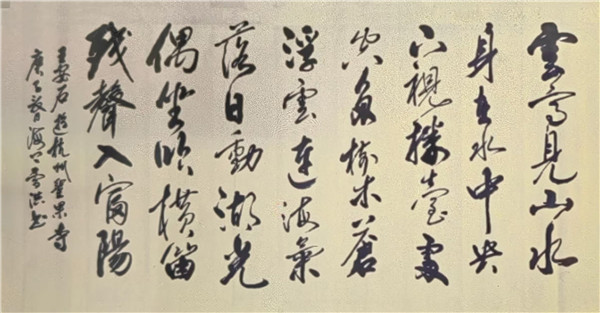 登高見山水
身在水中央
下視樓臺處
空多樹木蒼
浮雲連海氣
落日動湖光
偶坐吹橫笛
殘聲入富陽
王安石遊杭州聖果寺
庚子海上書